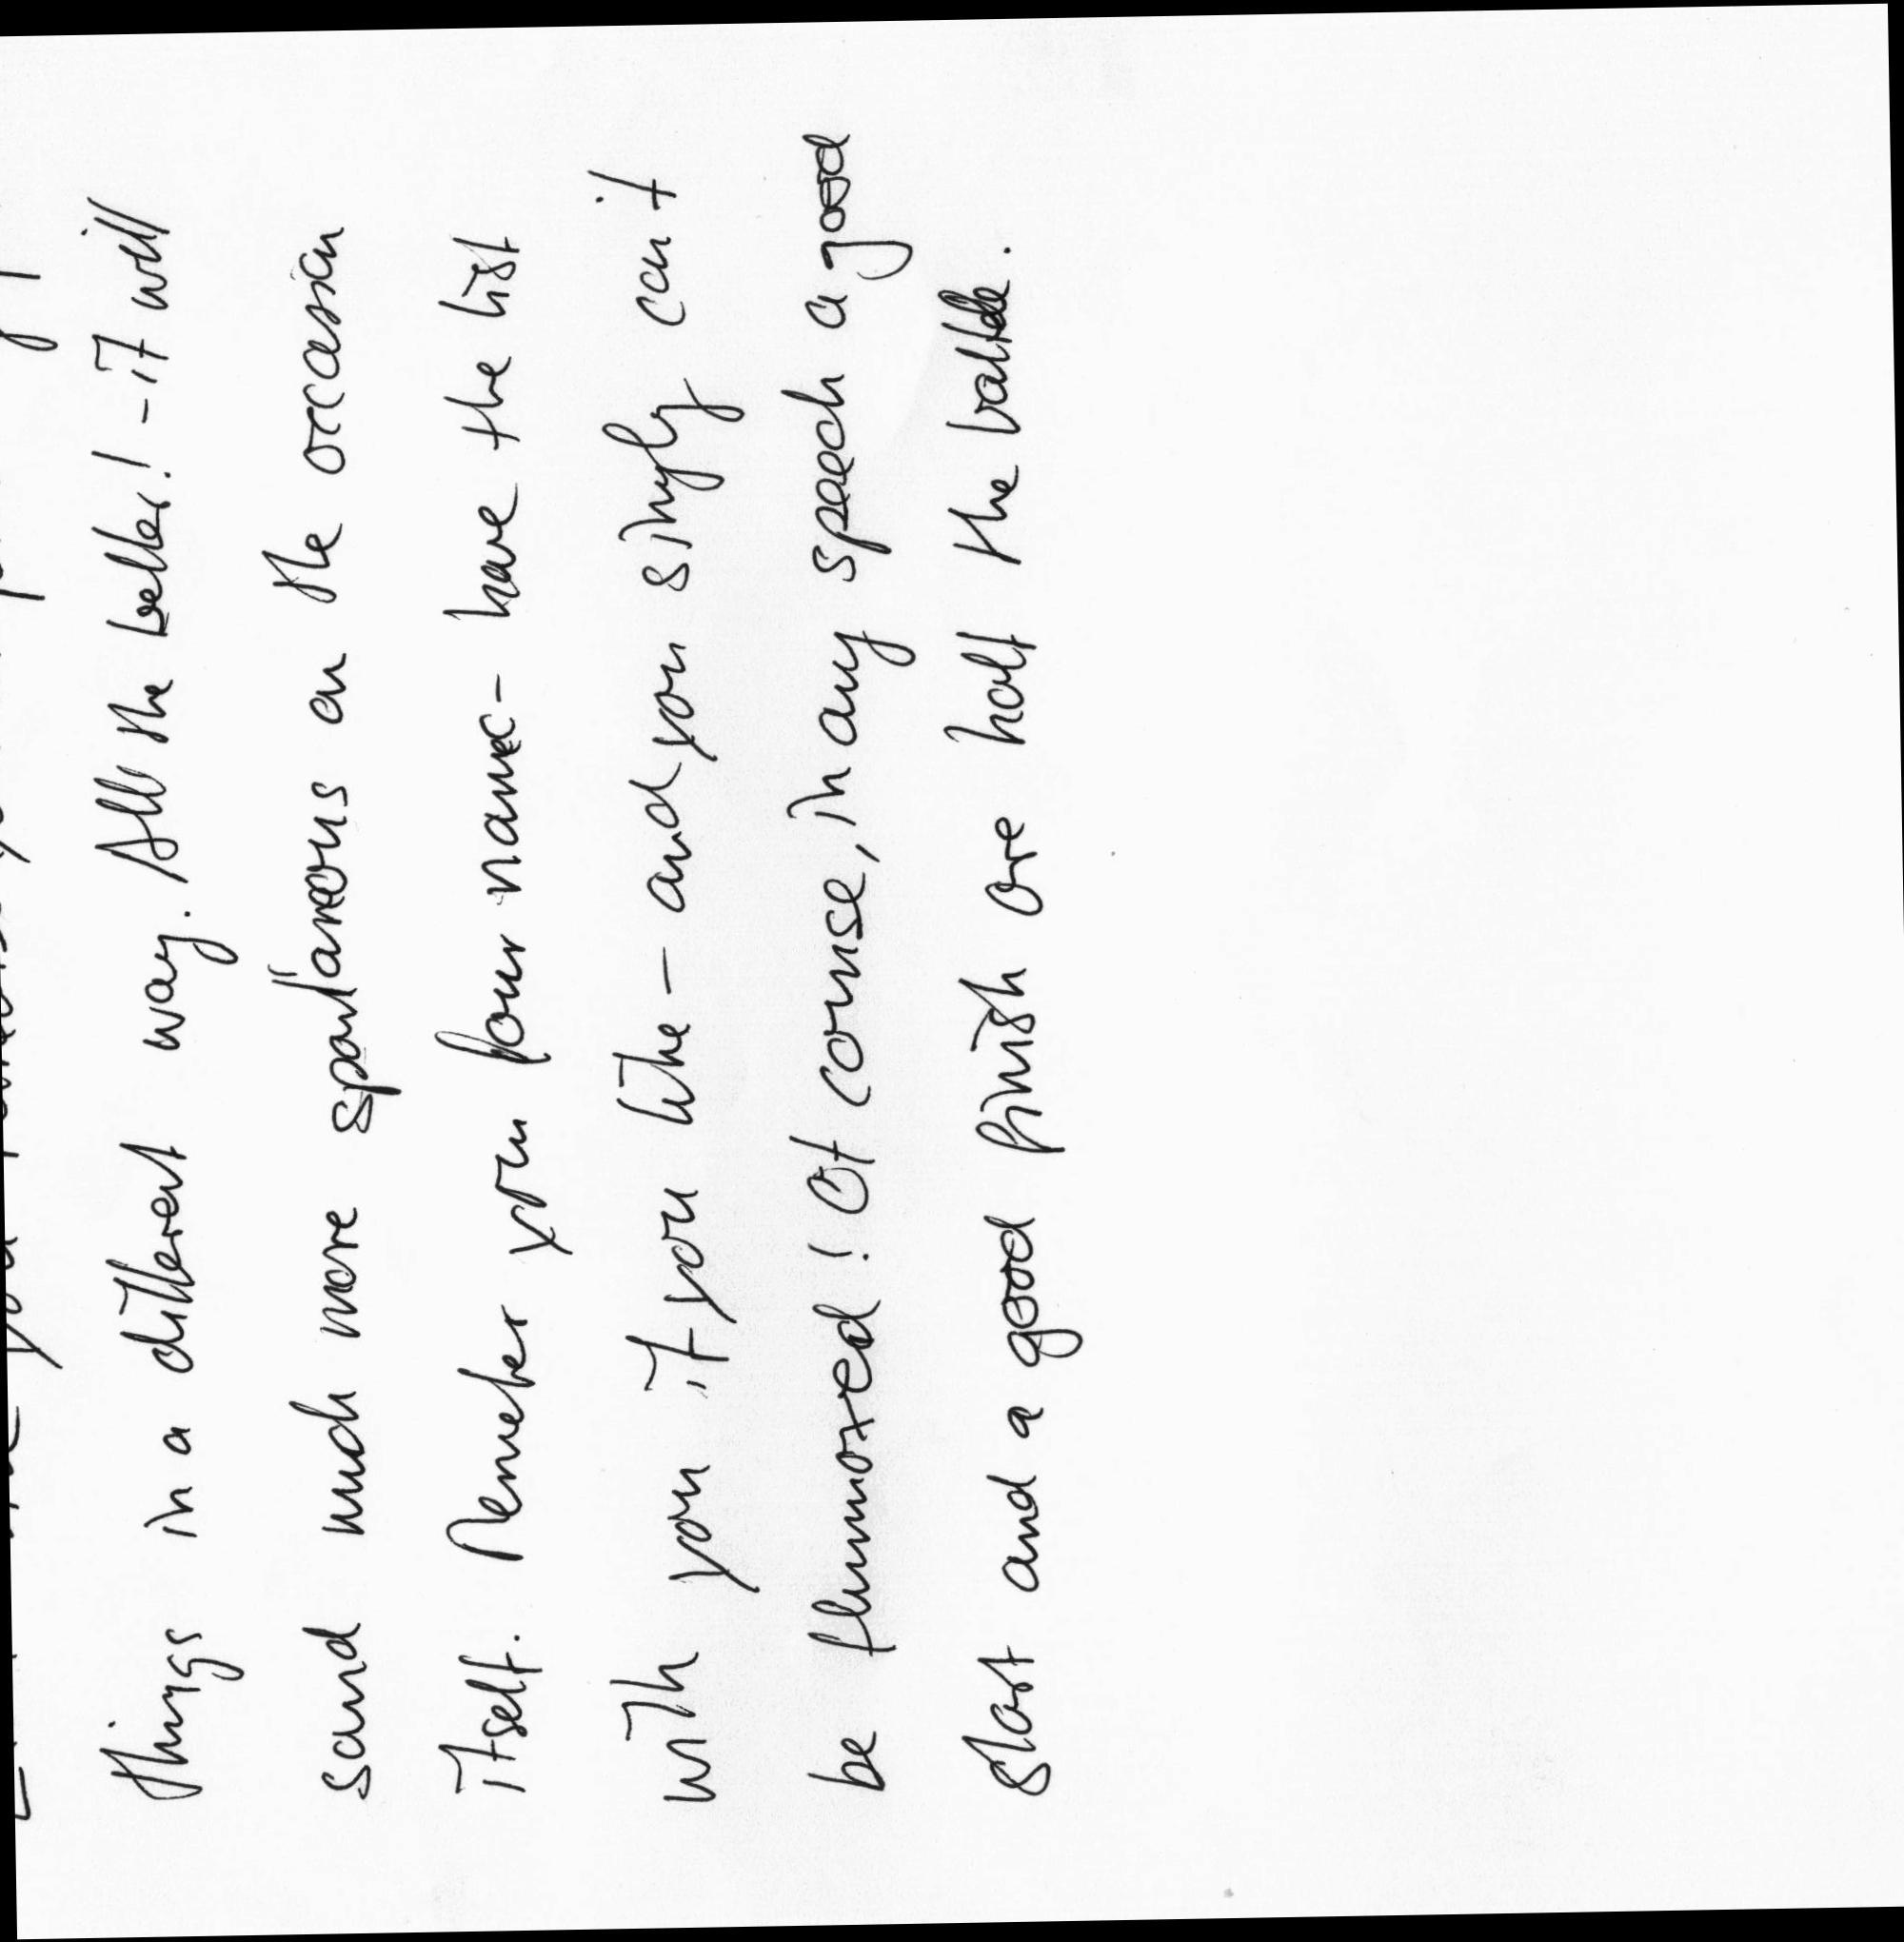 things in a different way. All the better! - it will
sound much more spontaneous on the occasion
itself. Remeber you four name - have the list
with you if you like - and you simply can't
be flummoxed! Of course, in any speech a good
start and a good finish are half the battle.